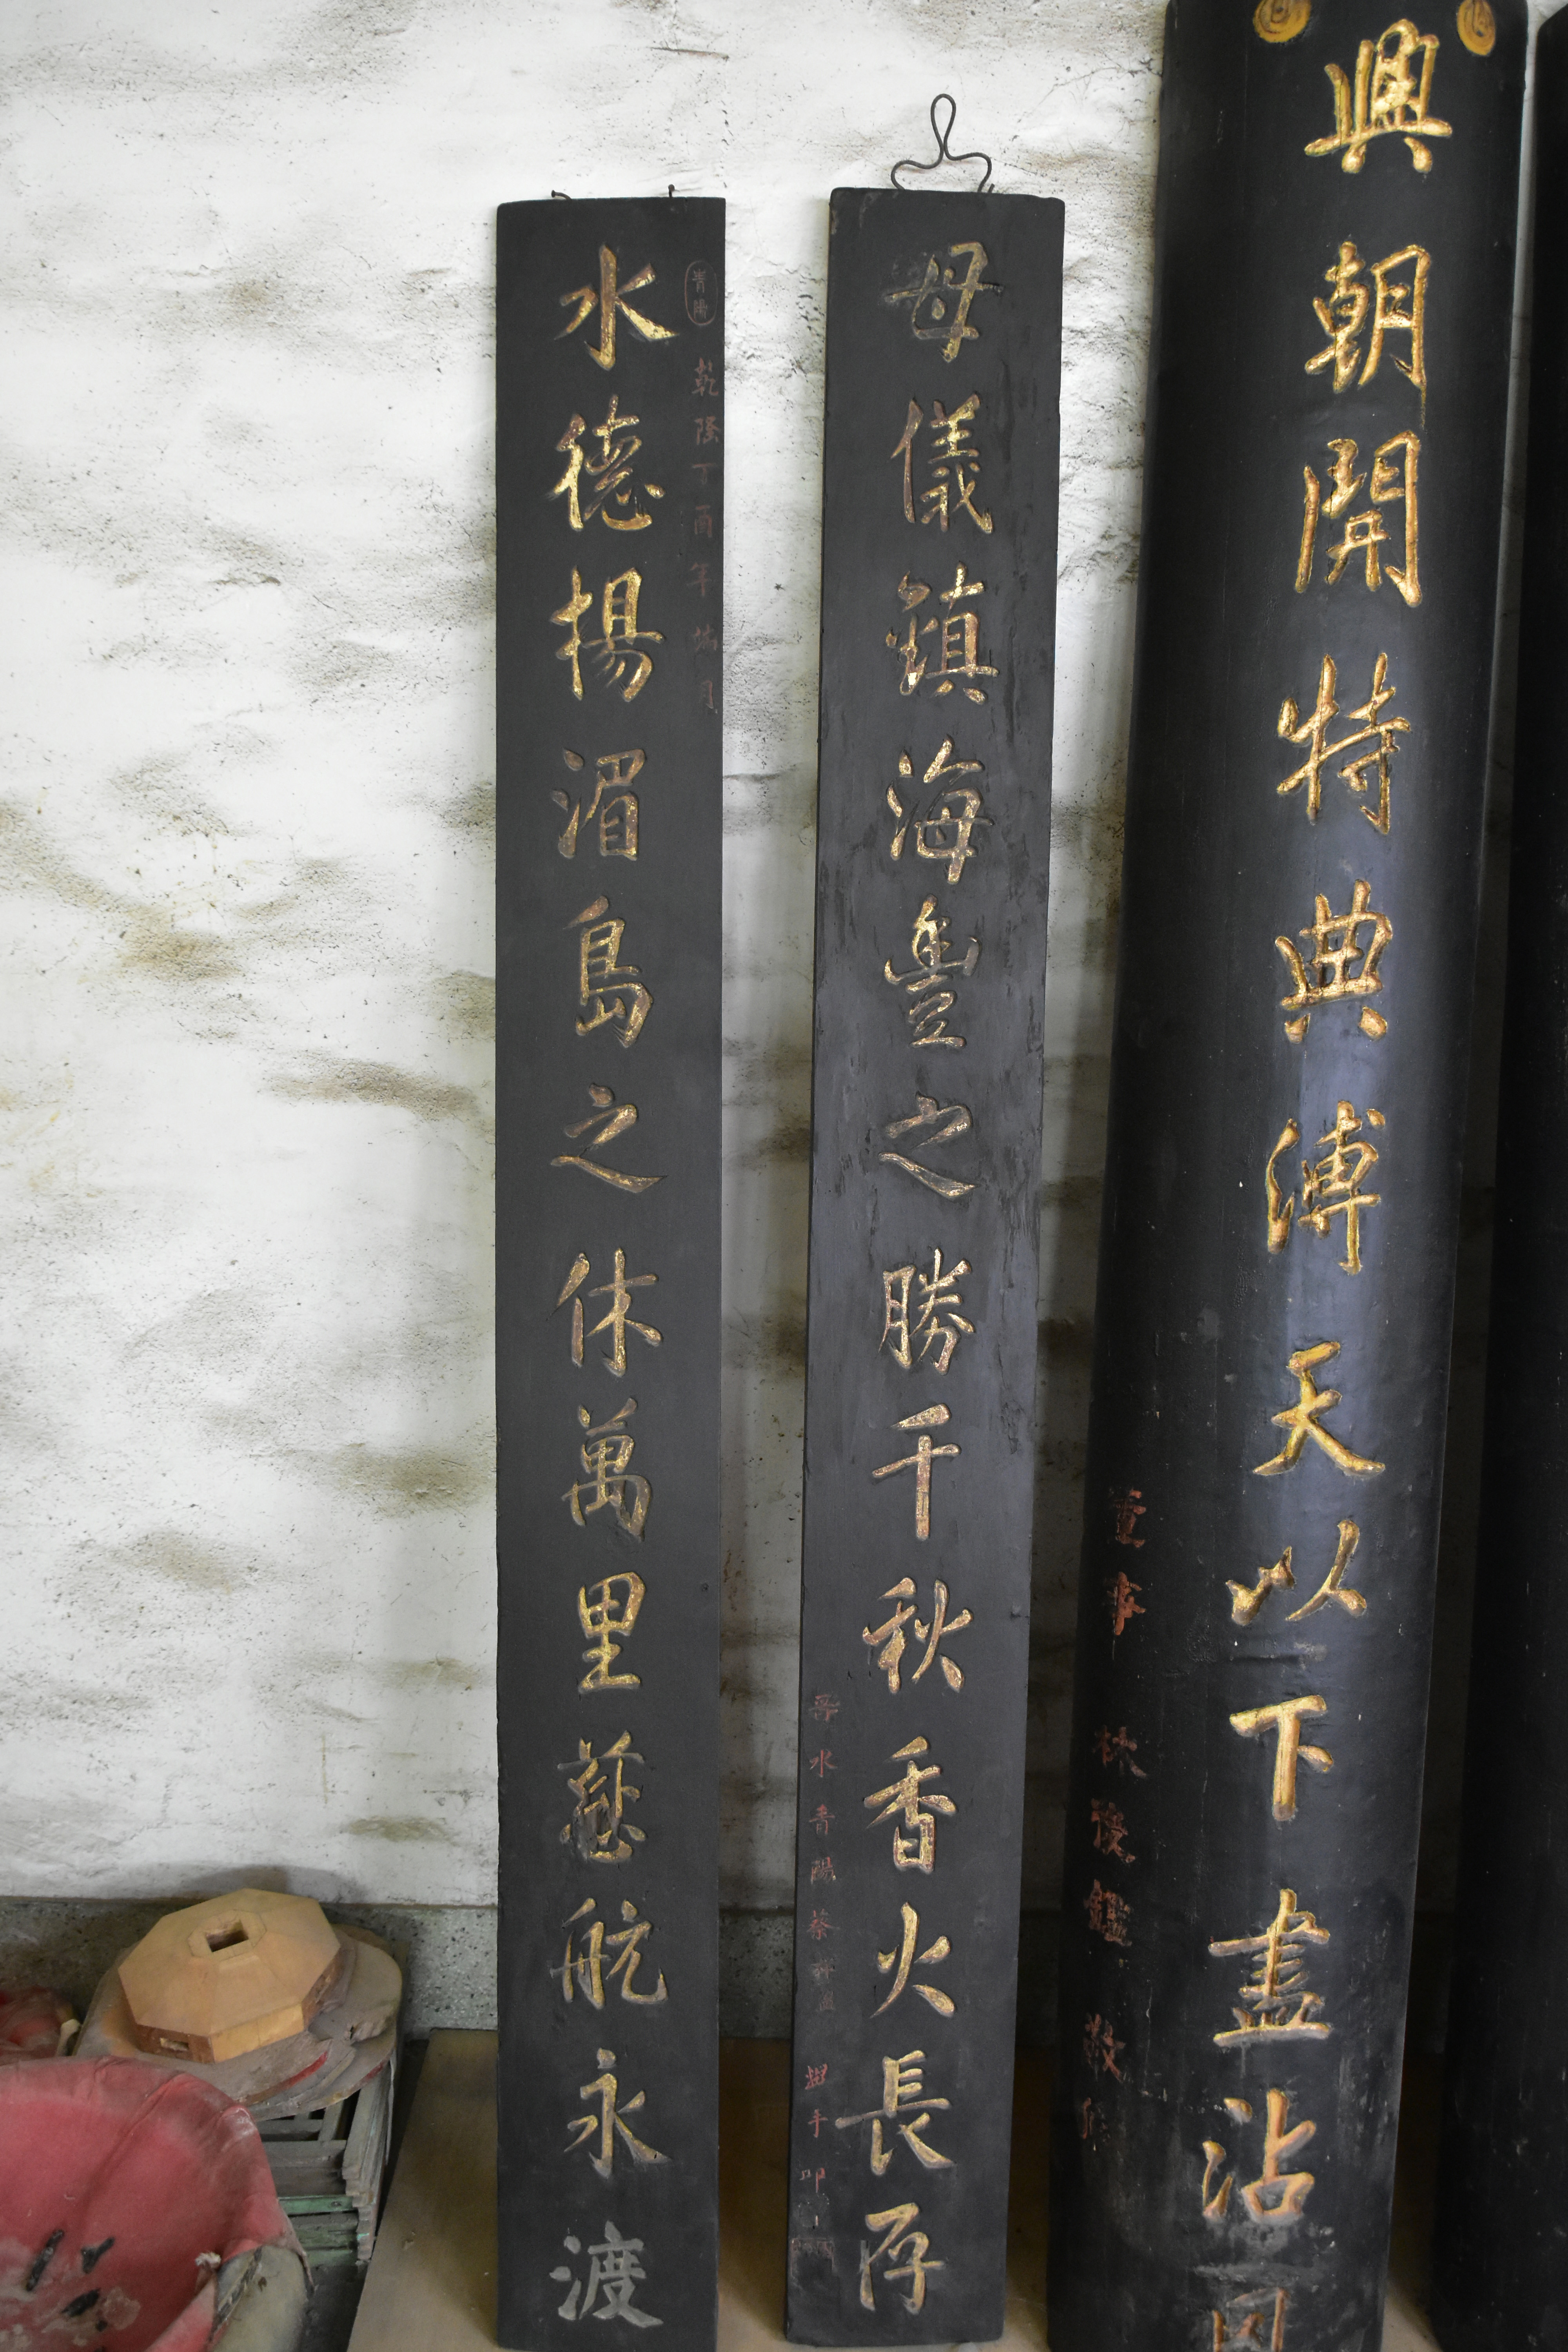 興朝開特典溥天以下盡沾
董事 林 敬
母儀鎮海豐之勝千秋香火長存
晉水青陽蔡
水德揚湄島之休萬里慈航永渡
青陽
乾隆丁酉年端月